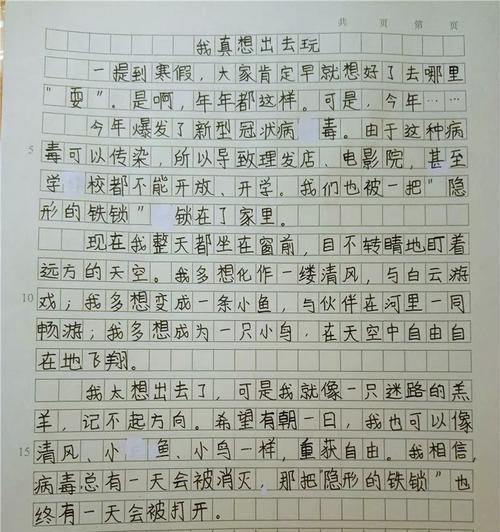 共 页 第 页
我真想出去玩
一提到寒假，大家肯定早就想好了去哪里
“耍”。是啊，年年都这样。可是，今年……
今年爆发了新型冠状病 毒。由于这种病
5 毒可以传染，所以导致理发店、电影院，甚至
学 校都不能开放、开学。我们也被一把“隐
形的铁锁” 锁在了家里。
现在我整天都坐在窗前，目不转睛地盯着
远方的天空。我多想化作一缕清风，与白云游
10 戏；我多想变成一条小鱼，与伙伴在河里一同
畅游；我多想成为一只小鸟，在天空中自由自
在地飞翔。
我太想出去了，可是我就像一只迷路的羔
羊，记不起方向。希望有朝一日，我也可以像
15 清风、小 鱼、小鸟一样，重获自由。我相信，
病毒总有一天会被消灭，那把“隐形的铁锁”也
终有一天会被打开。